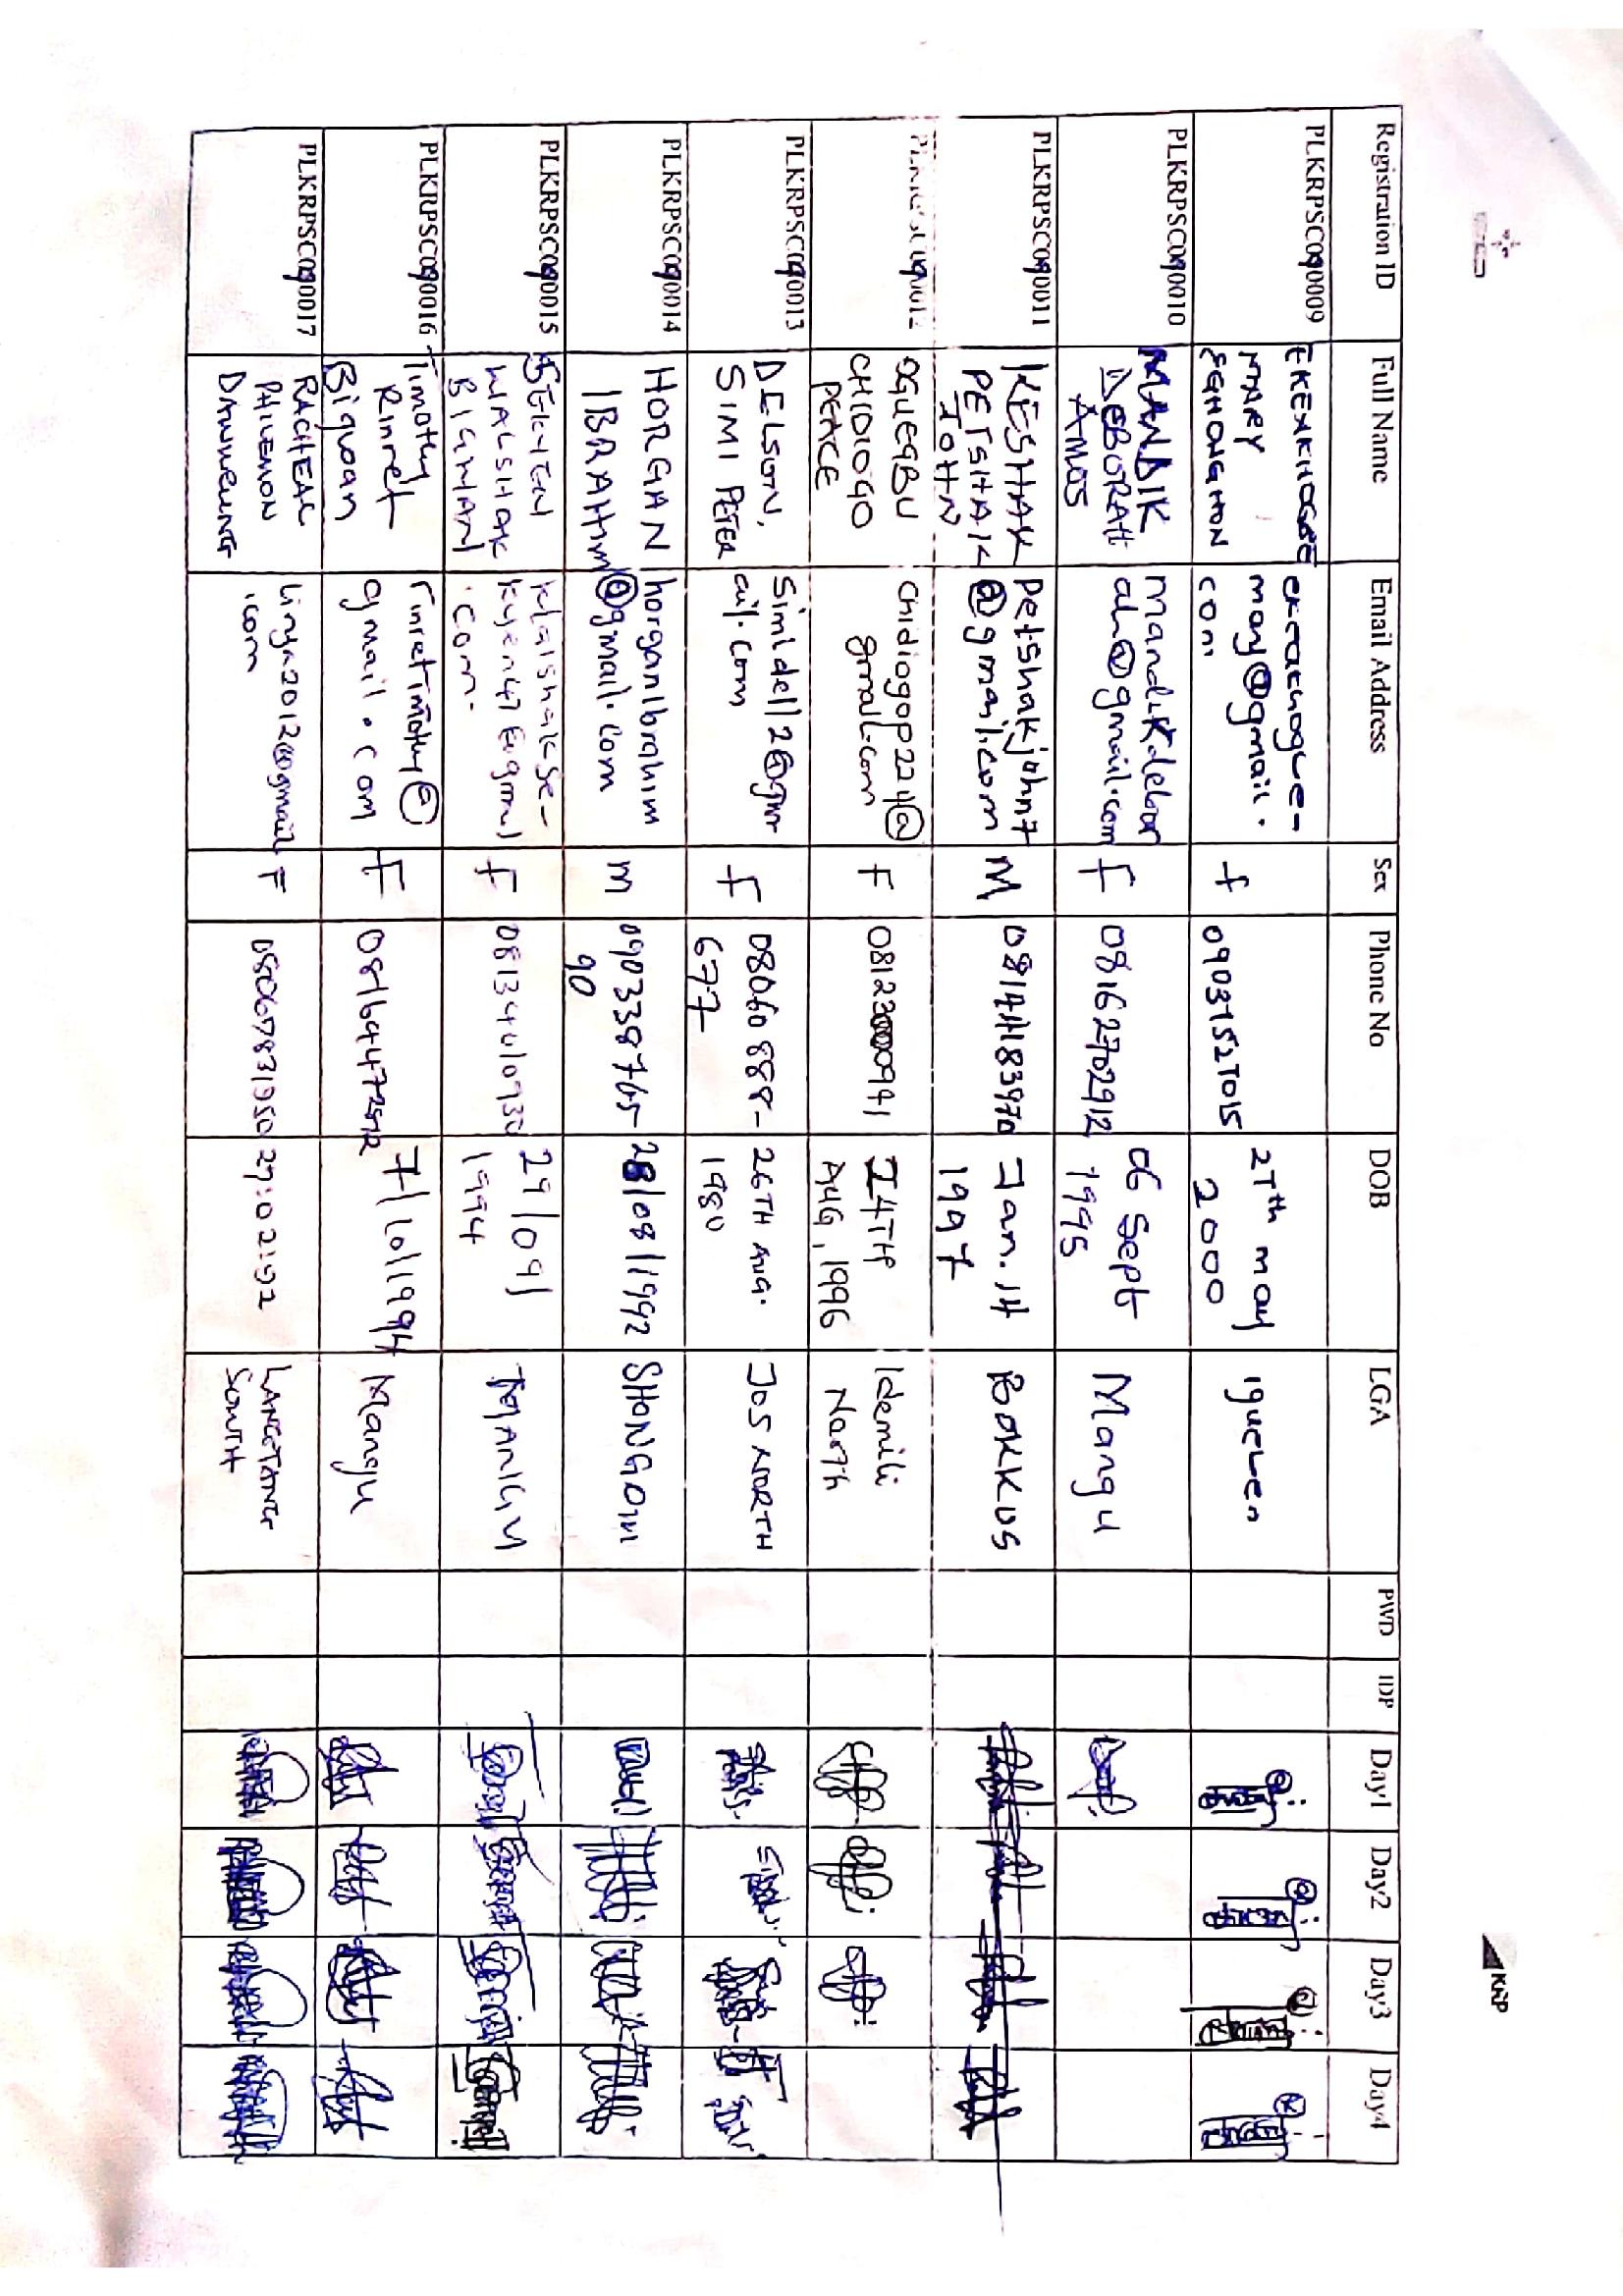 KRP
Registration ID Full Name Email Address Sex Phone No DOB LGA PWD IDP Day1 Day2 Day3 Day4
PLKRPSC090009
MARY
may@gmail.
com
f
27th may
2000
PLKRPSC090010
MANDIK
DEBORAH
AMOS
mandikdebor
ah@gmail.com
F
08162702912
06 Sept
1995
Mangu
PLKRPSC090011
KESHAK
PETSHAK
JOHN
Petshakjohn7
@gmail.com
M
08144183970
Jan. 14
1997
BOKKOS
PLKRPSC090012
OGUEGBU
CHIDIOGO
PEACE
Chidiogop224@
gmail.com
F
08123000941
14TH
AUG, 1996
Idemili
North
PLKRPSC090013
DELSON,
SIMI PETER
Simidell2@gm
ail.com
F
08060888-
677
26TH AUG.
1980
JOS NORTH
PLKRPSC090014
HORGAN
IBRAHIM
horganibrahim
@gmail.com
m
090338765
90
28/08/1992
SHONGOM
PLKRPSC090015
SEKYEN
WALSHAK
BIGWAN
kyen47@gmail
.com
F
29/09/
1994
MANGU
PLKRPSC090016
Timothy
Rinret
Bigwan
rinretimothy@
gmail.com
F
7/10/1994
Mangu
PLKRPSC090017
RACHEAL
PHILEMON
2012@gmail
.com
F
08067831950
27:02:92
LANGTANG
SOUTH